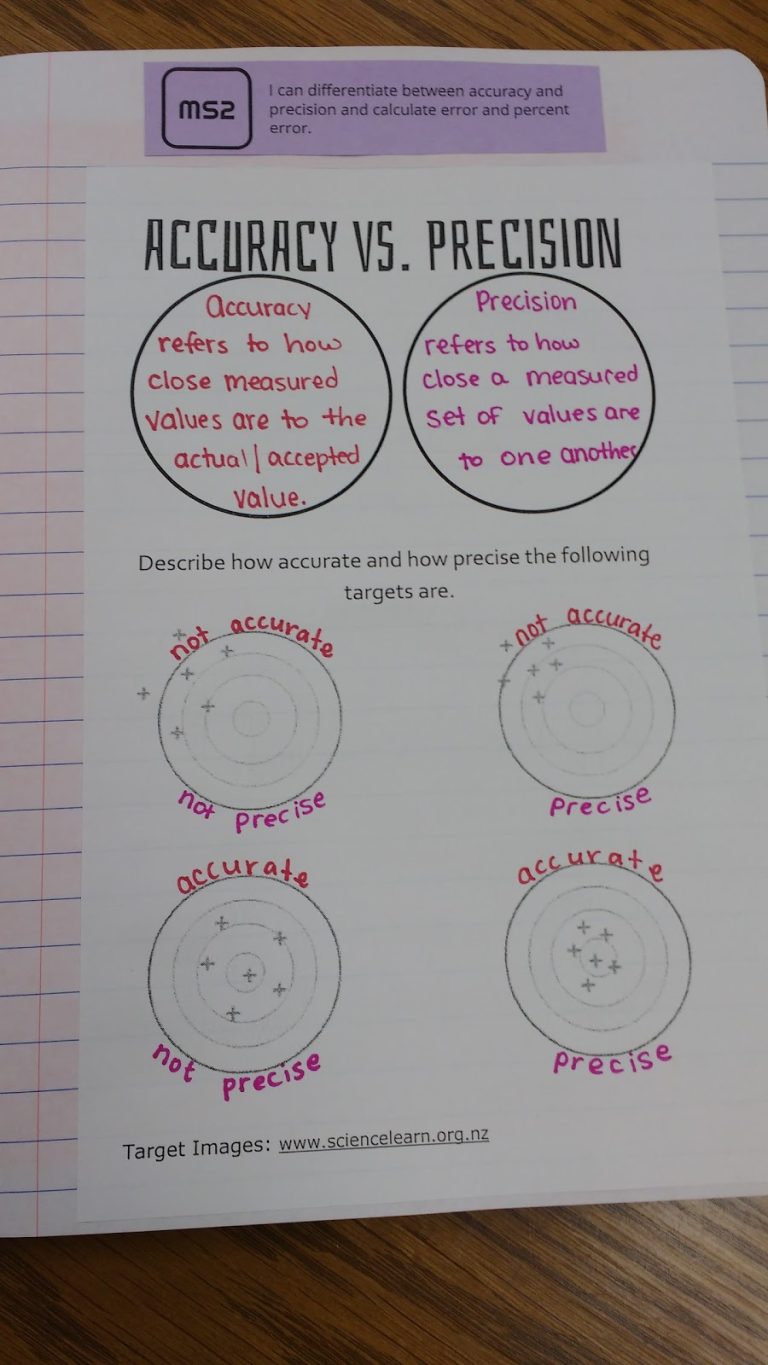 MS2
I can differentiate between accuracy and
precision and calculate error and percent
error.
ACCURACY VS. PRECISION
Accuracy
refers to how
close measured
values are to the
actual/accepted
value.
Precision
refers to how
close a measured
set of values are
to one another
Describe how accurate and how precise the following
targets are.
not accurate
not precise
not accurate
Precise
accurate
not precise
accurate
precise
Target Images: www.sciencelearn.org.nz